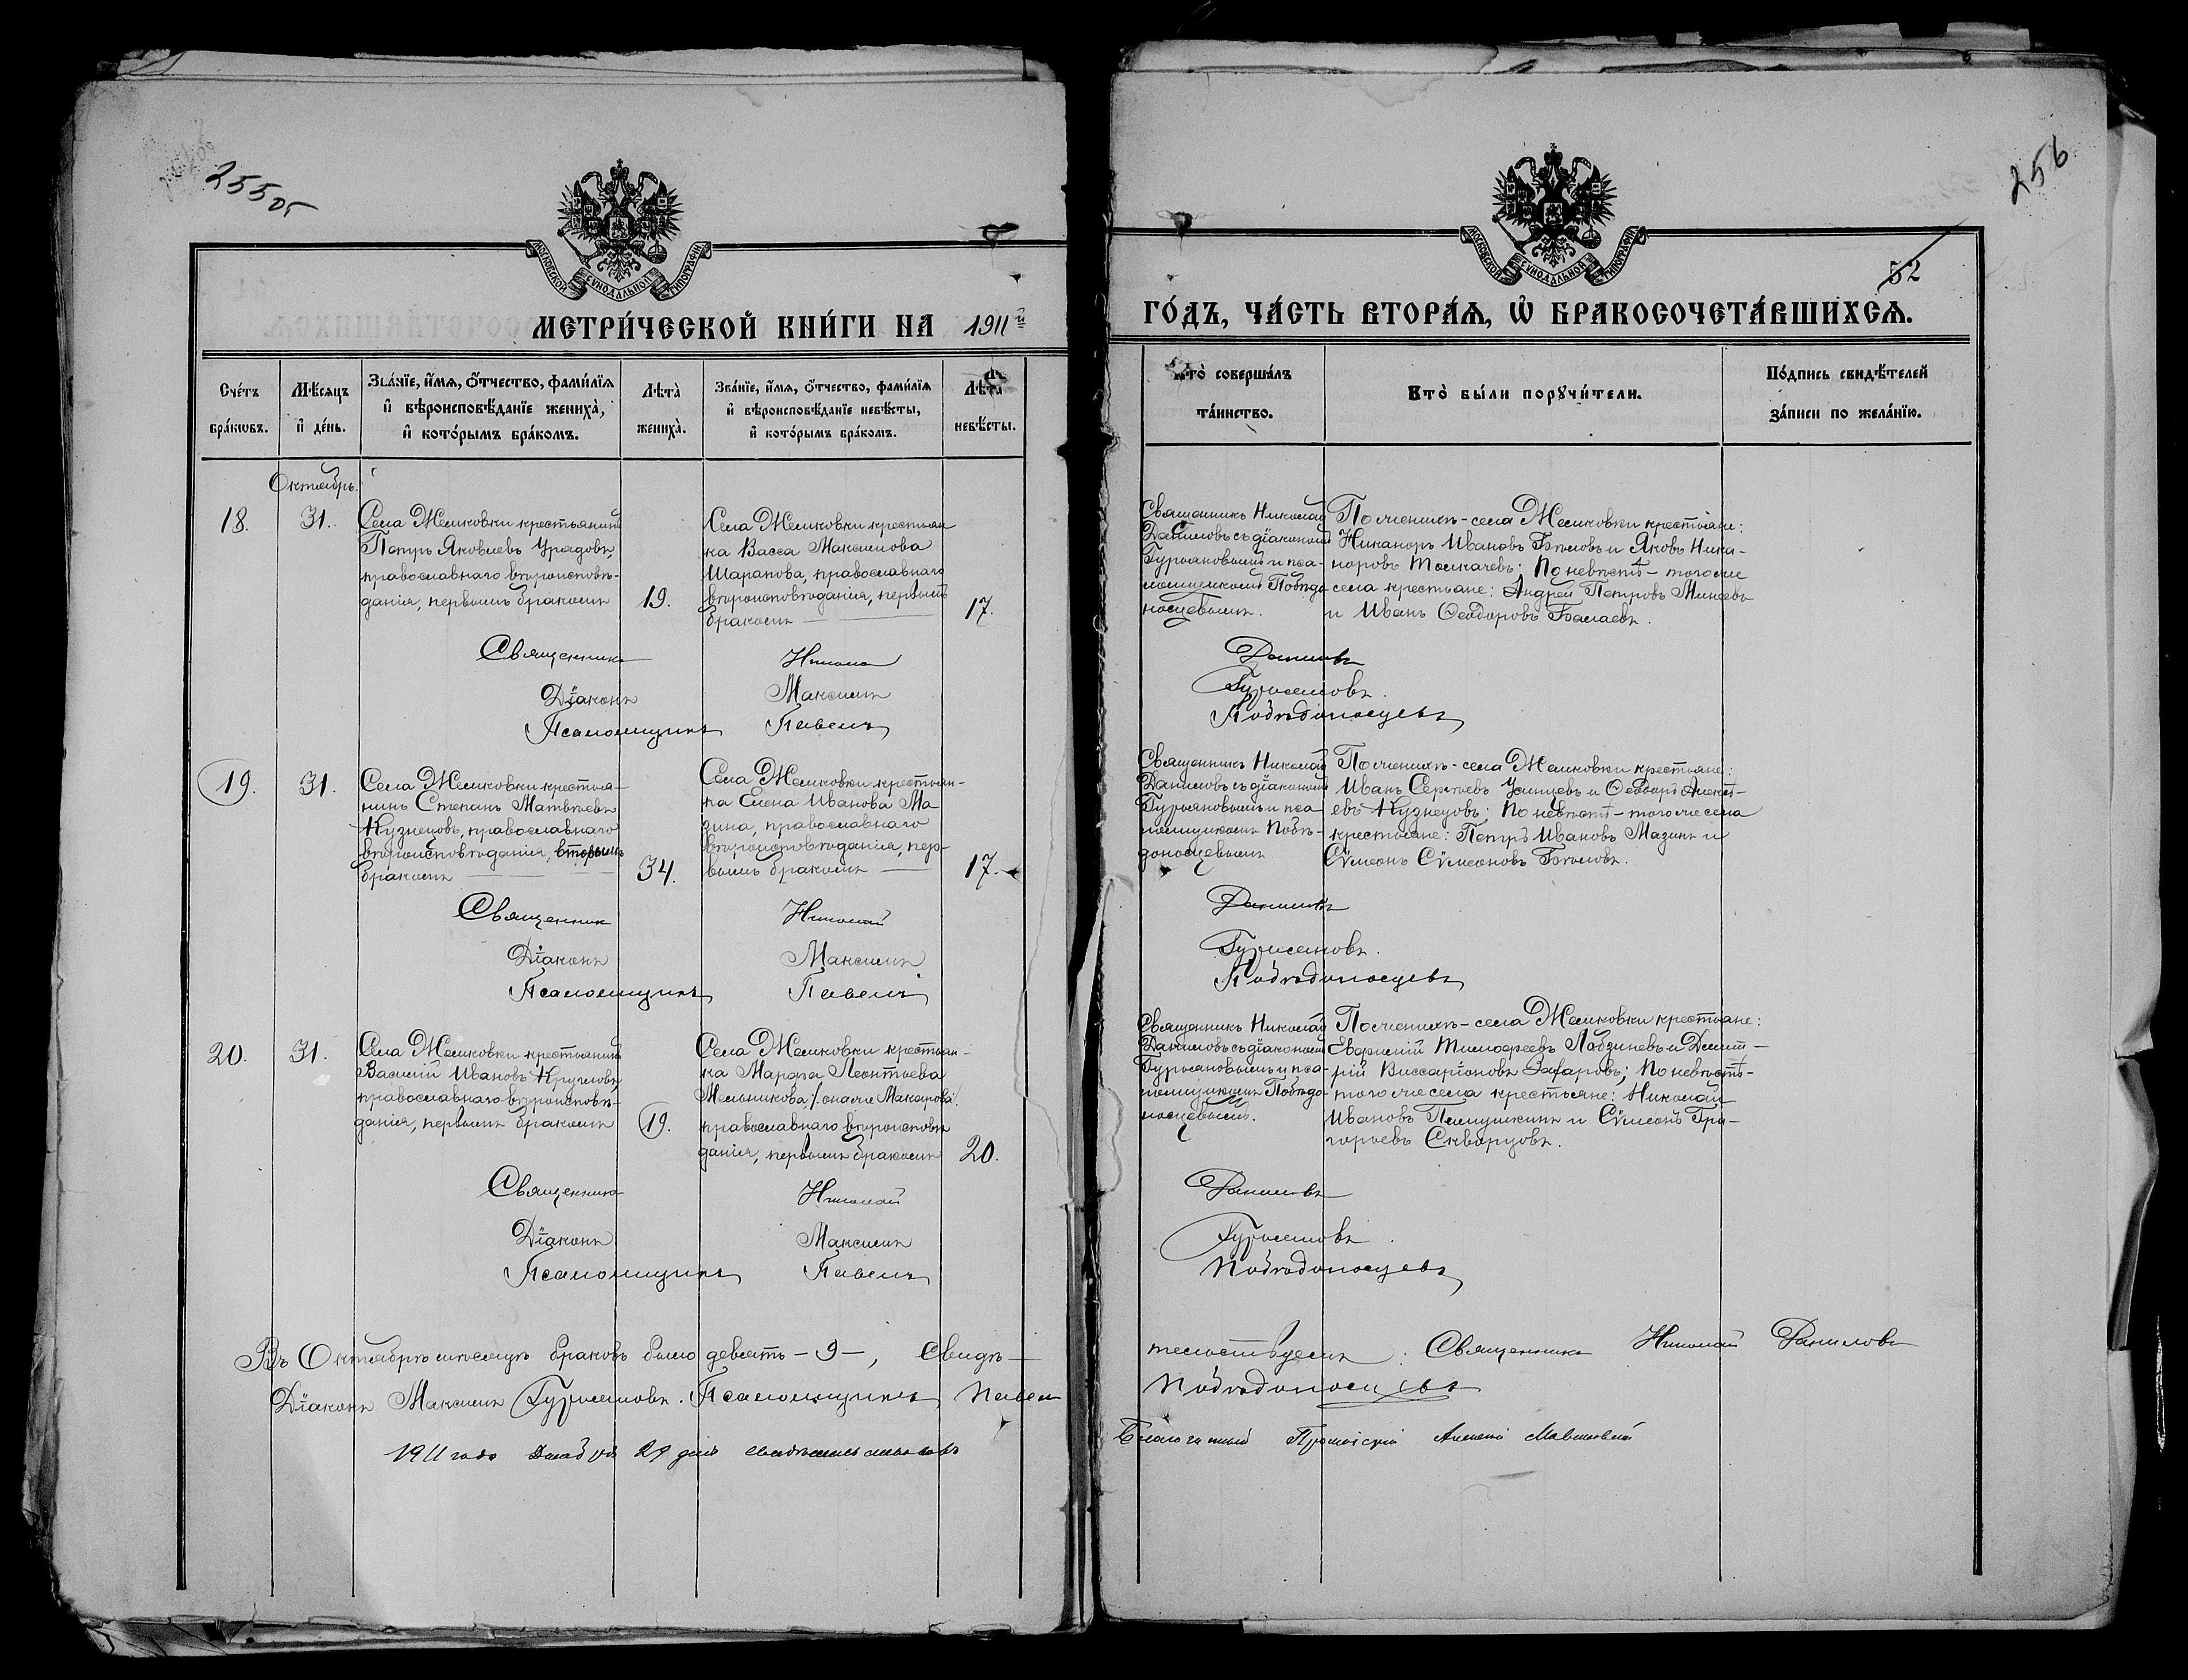 255об
256
МОСКОВСКОЙ СУНОДАЛЬНОЙ ТИПОГРАФІИ
МОСКОВСКОЙ СУНОДАЛЬНОЙ ТИПОГРАФІИ
52
МЕТРИ́ЧЕСКОЙ КНИ́ГИ НА 1911й
ГО́ДЪ, ЧА́СТЬ ВТОРА́Ѧ, Ѿ БРАКОСОЧЕТА́ВШИХСѦ.
Сче́тъ
бра́кѡвъ.
Мѣ́сяцъ
и҆ де́нь.
Зва́нїе, и҆́мѧ, ѻ҆́тчество, фами́лїѧ
и҆ вѣроисповѣ́данїе жениха̀,
и҆ кото́рымъ бра́комъ.
Лѣта̀
жениха̀.
Зва́нїе, и҆́мѧ, ѻ҆́тчество, фами́лїѧ
и҆ вѣроисповѣ́данїе невѣ́сты,
и҆ кото́рымъ бра́комъ.
Лѣта̀
невѣ́сты.
Кто̀ соверша́лъ
та́инство.
Кто̀ бы́ли порꙋчи́тели.
По́дпись свидѣ́телей
за́писи по жела́нїю.
Октябрь.
18.
31.
Села Жемковки крестьянинъ
Петръ Яковлевъ Урядовъ,
православнаго вѣроисповѣ-
данія, первымъ бракомъ
19.
Села Жемковки крестьян
ка Васса Максимова
Шарапова, православнаго
вѣроисповѣданія, первымъ
бракомъ
17.
Священникъ Николай
Даниловъ съ діакономъ
Гурьяновымъ и пса-
ломщикомъ Побѣдо
носцевымъ.
По женихѣ - села Жемковки крестьяне:
Никаноръ Ивановъ Бѣловъ и Яковъ Ника-
норовъ Толкачевъ; По невѣстѣ - того же
села крестьяне: Андрей Петровъ Минеевъ
и Иванъ Ѳеодоровъ Балаевъ.
Священникъ Никола Даниловъ
Діаконъ Максимъ Гурьяновъ.
Псаломщикъ Павелъ Побѣдоносцевъ
19.
31.
Села Жемковки крестья-
нинъ Степанъ Матвѣевъ
Кузнецовъ, православнаго
вѣроисповѣданія, вторымъ
бракомъ
34.
Села Жемковки крестьян-
ка Елена Иванова Ма-
зина, православнаго
вѣроисповѣданія, пер-
вымъ бракомъ
17.
Священникъ Николай
Даниловъ съ діакономъ
Гурьяновымъ и пса
ломщикомъ Побѣ-
доносцевымъ
По женихѣ - села Жемковки крестьяне:
Иванъ Сергѣевъ и Ѳеодоръ Алексѣ-
евъ Кузнецовъ; По невѣстѣ - того же села
крестьяне: Петръ Ивановъ Мазинъ и
Сѵмеонъ Сѵмеоновъ Бѣловъ.
Священник Николай Даниловъ
Діаконъ Максимъ Гурьяновъ.
Псаломщикъ Павелъ Побѣдоносцевъ
20.
31.
Села Жемковки крестьянинъ
Василій Ивановъ Кругловъ,
православнаго вѣроисповѣ-
данія, первымъ бракомъ
19.
Села Жемковки крестьян-
ка Марѳа Леонтьева
Мельникова, /: оналже Макарова:/
православнаго вѣроисповѣ
данія, первымъ бракомъ
20.
Священникъ Николай
Даниловъ съ діакономъ
Гурьяновымъ и пса-
ломщикомъ Побѣдо
носцевымъ.
По женихѣ - села Жемковки крестьяне:
Тимоѳеевъ Лобзиневъ и Димит-
рій Виссаріоновъ Захаровъ; По невѣстѣ -
того же села крестьяне: Николай
Ивановъ и Сѵмеонъ Гри-
горьевъ Скворцовъ.
Священникъ Николай Даниловъ
Діаконъ Максимъ Гурьяновъ.
Псаломщикъ Павелъ Побѣдоносцевъ
Въ Октябрѣ мѣсяцѣ браковъ было девять - 9 -, Свидѣ-
тельствуемъ: Священникъ Николай Даниловъ
Діаконъ Максимъ Гурьяновъ. Псаломщикъ Павел
Побѣдоносцевъ
1911 года 29 дня свидѣтельствовалъ
Благочинный Протоіерей Алексѣй